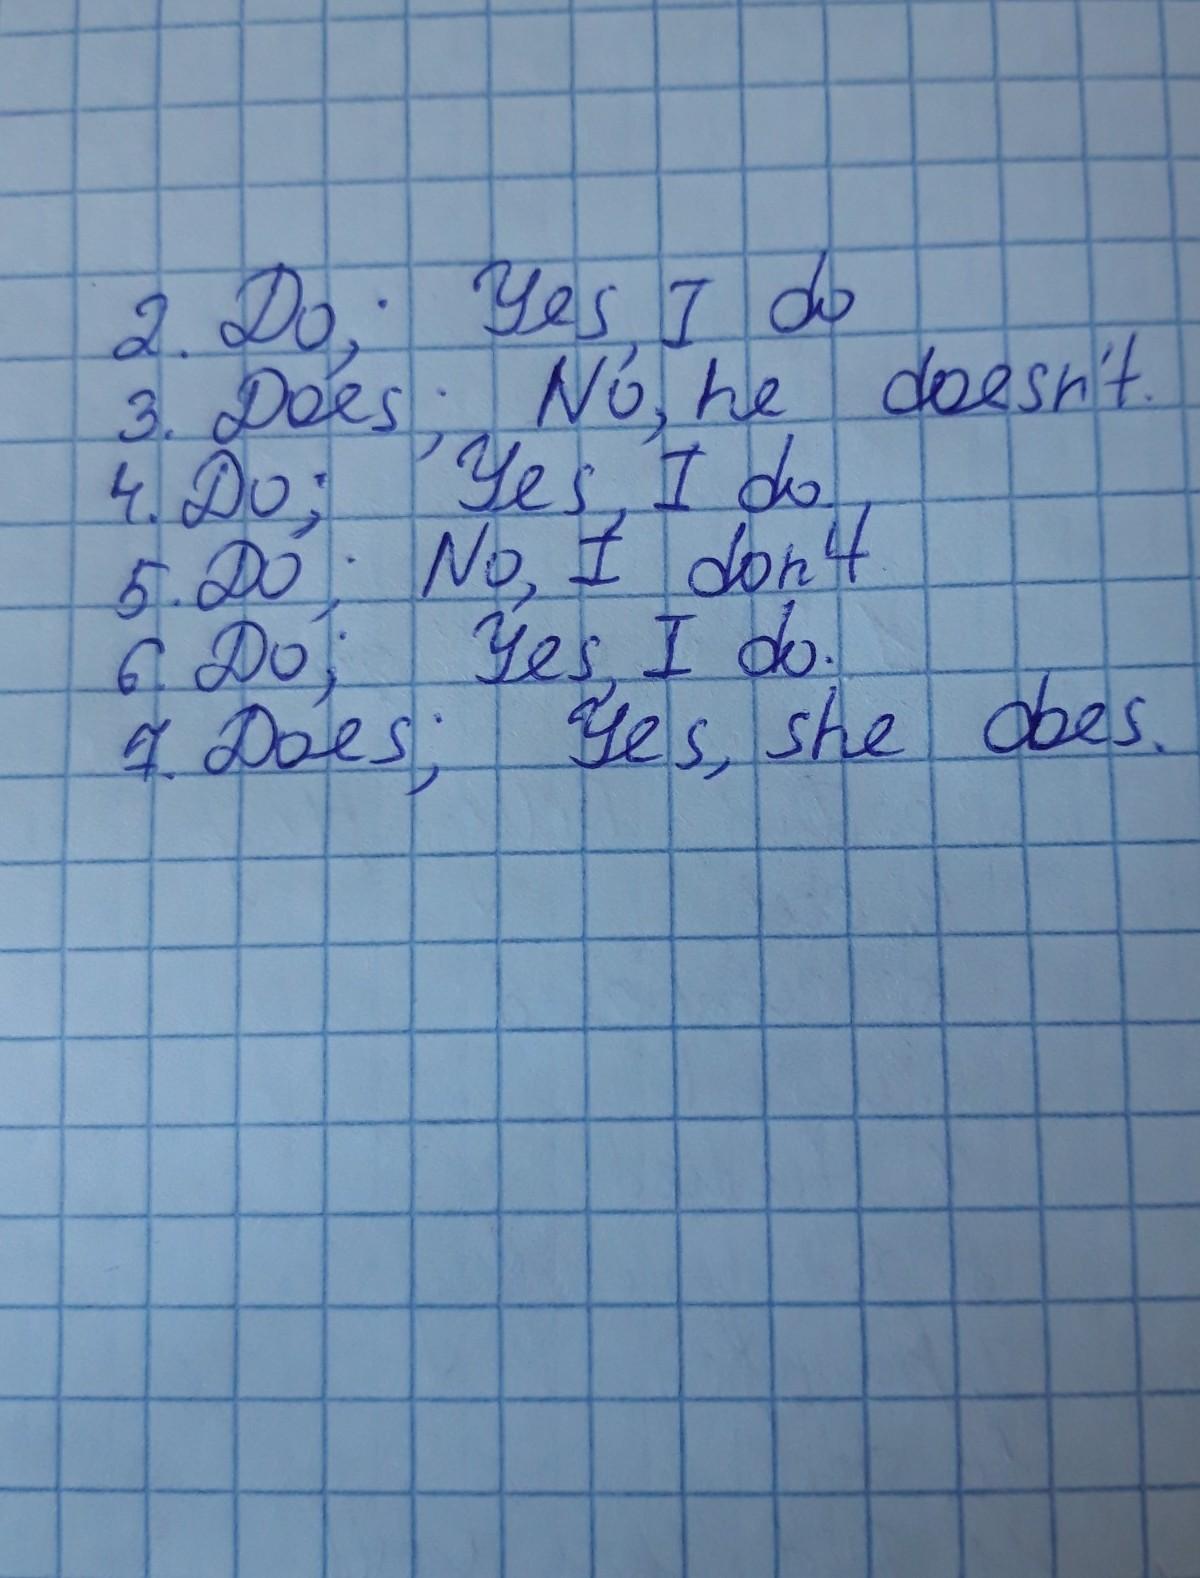 2. Do; Yes, I do
3. Does; No, he doesn't.
4. Do; Yes, I do.
5. Do; No, I don't
6. Do; Yes, I do.
7. Does; Yes, she does.